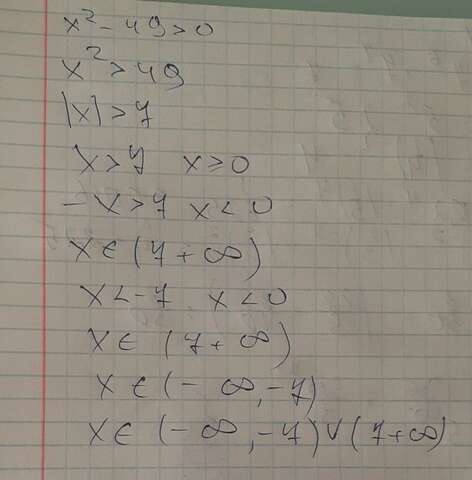 x² - 49 > 0
x² > 49
|x| > 7
x > 7 x ≥ 0
- x > 7 x < 0
x ∈ (7 + ∞)
x < - 7 x < 0
x ∈ (7 + ∞)
x ∈ (- ∞, -7)
x ∈ (- ∞, -7) ∨ (7 + ∞)